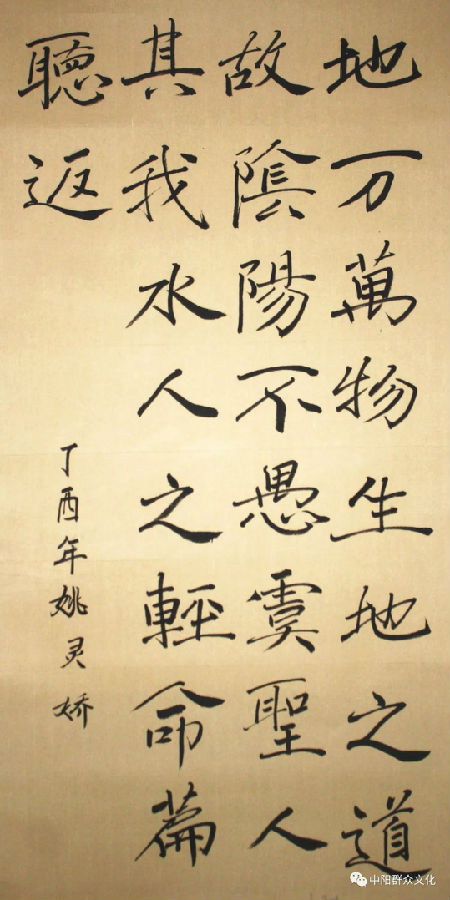 地万萬物生地之道
故陰陽不愚虞聖人
其我水人之輕命篇
聽返
丁酉年姚灵娇
中阳群众文化